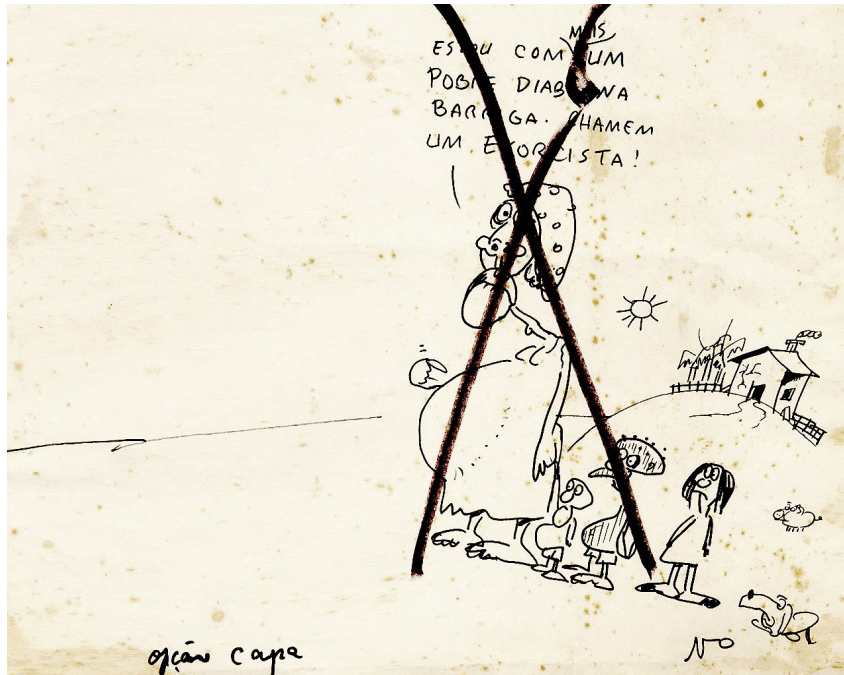 MAIS
ESTOU COM UM
POBRE DIABO NA
BARRIGA. CHAMEM
UM EXORCISTA!
opção capa
NO